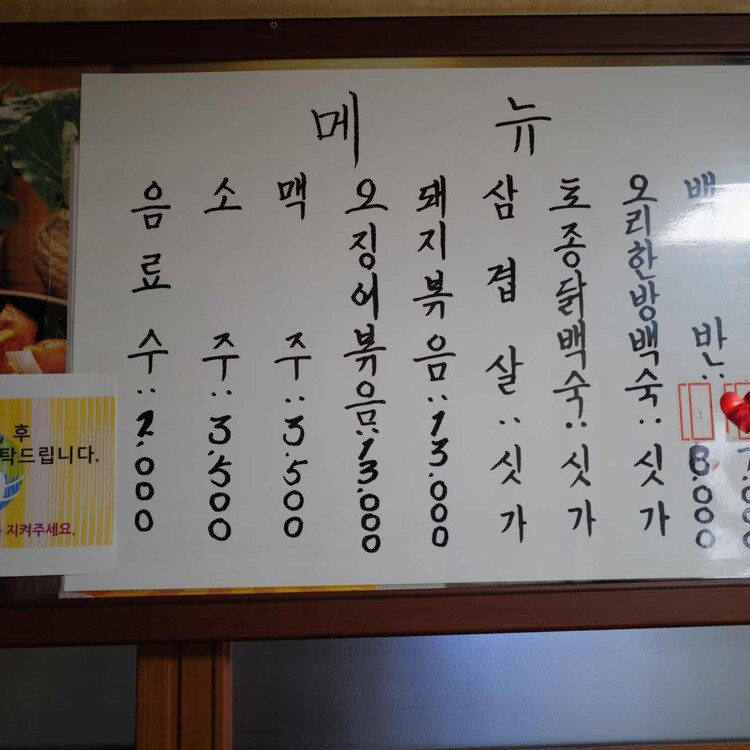 메 뉴
7.000
백 반: 8.000
오리한방백숙: 싯가
토종닭백숙: 싯가
삼겹살: 싯가
돼지볶음: 13.000
오징어볶음: 13.000
맥 주: 3.500
소 주: 3.500
음료수: 2.000
후
탁드립니다.
지켜주세요.